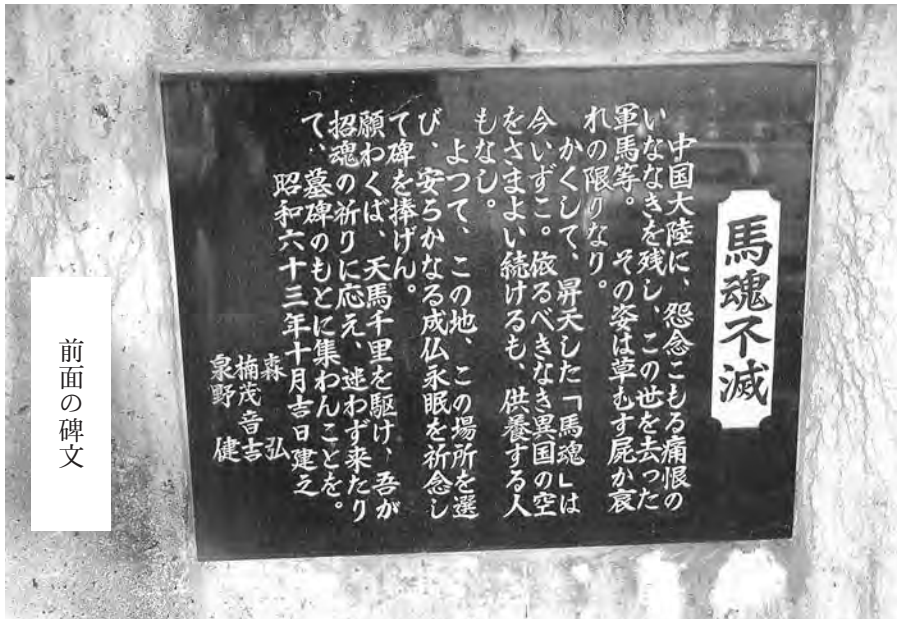 馬魂不滅
中国大陸に、怨念こもる痛恨の
いななきを残し、この世を去った
軍馬等。その姿は草むす屍か哀
れの限りなり。
かくして、昇天した「馬魂」は
今いずこ。依るべきなき異国の空
をさまよい続けるも、供養する人
もなし。
よつて、この地、この場所を選
び、安らかなる成仏永眠を祈念し
て碑を捧げん。
願わくば、天馬千里を駆け、吾が
招魂の祈りに応え、迷わず来たり
て、墓碑のもとに集わんことを。
昭和六十三年十月吉日建之
森 弘
楠茂音吉
泉野 健
前面の碑文